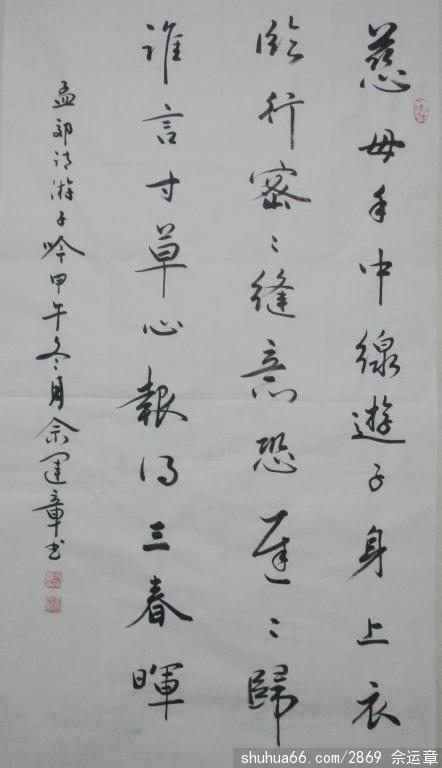 慈母手中線遊子身上衣
臨行密〻縫意恐遲〻歸
誰言寸草心報得三春暉
孟郊詩游子吟甲午冬月余運章书
shuhua66.com/2869 余运章